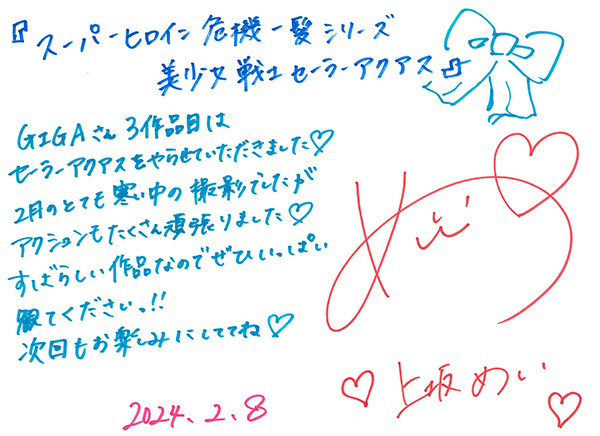 『スーパーヒロイン危機一髪シリーズ
美少女戦士セーラーアクアス』
GIGAさん3作品目は
セーラーアクアスをやらせていただきました♡
2月のとても寒い中の撮影でしたが
アクションもたくさん頑張りました♡
すばらしい作品なのでぜひいっぱい
観てくださいっ!!
次回もお楽しみにしててね♡
めい♡
♡上坂めい♡
2024.2.8